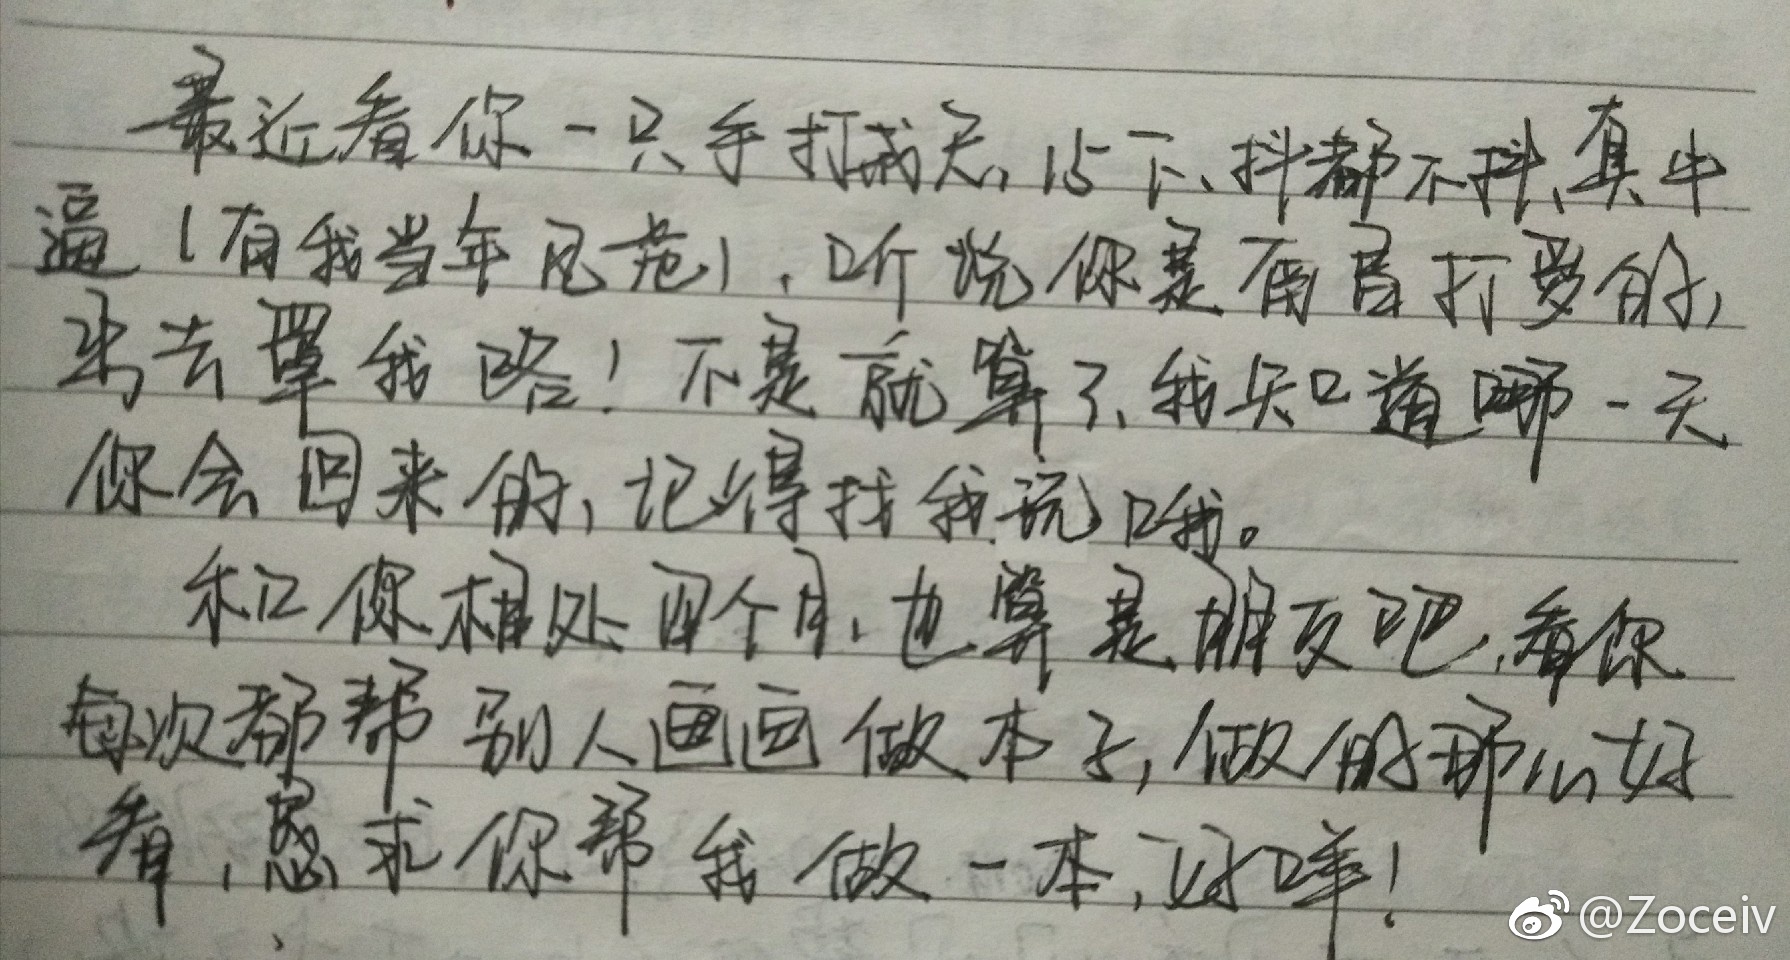 最近看你一只手打成天,15下、抖都不抖、真牛
逼(有我当年风范),听说你是有官打多的,
出去罩我咯!不是就算了、我知道哪一天
你会回来的,记得找我玩哦。
和你相处四个月,也算是朋友吧,看你
每次都帮别人画画做本子,做的那么好
看,恳求你帮我做一本,好咩!
@Zoceiv